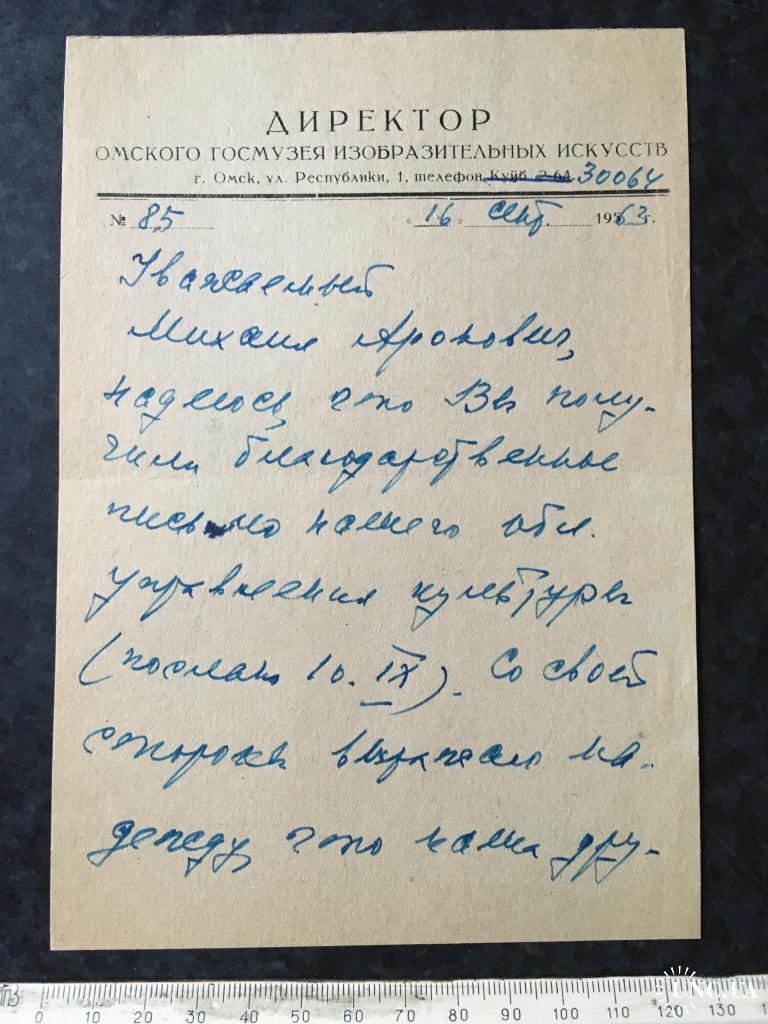 ДИРЕКТОР
ОМСКОГО ГОСМУЗЕЯ ИЗОБРАЗИТЕЛЬНЫХ ИСКУССТВ
г. Омск, ул. Республики, 1, телефон Куйб. 2-64 30064
№ 85 «16» сент. 1963 г.
Уважаемый
Михаил Аронович,
надеюсь, что Вы полу-
чили благодарственное
письмо нашего обл.
управления культуры
(послано 10. IX). Со своей
стороны выражаю на-
дежду, что наша дру-
0 10 20 30 40 50 60 70 80 90 100 110 120 130
UNC.UA